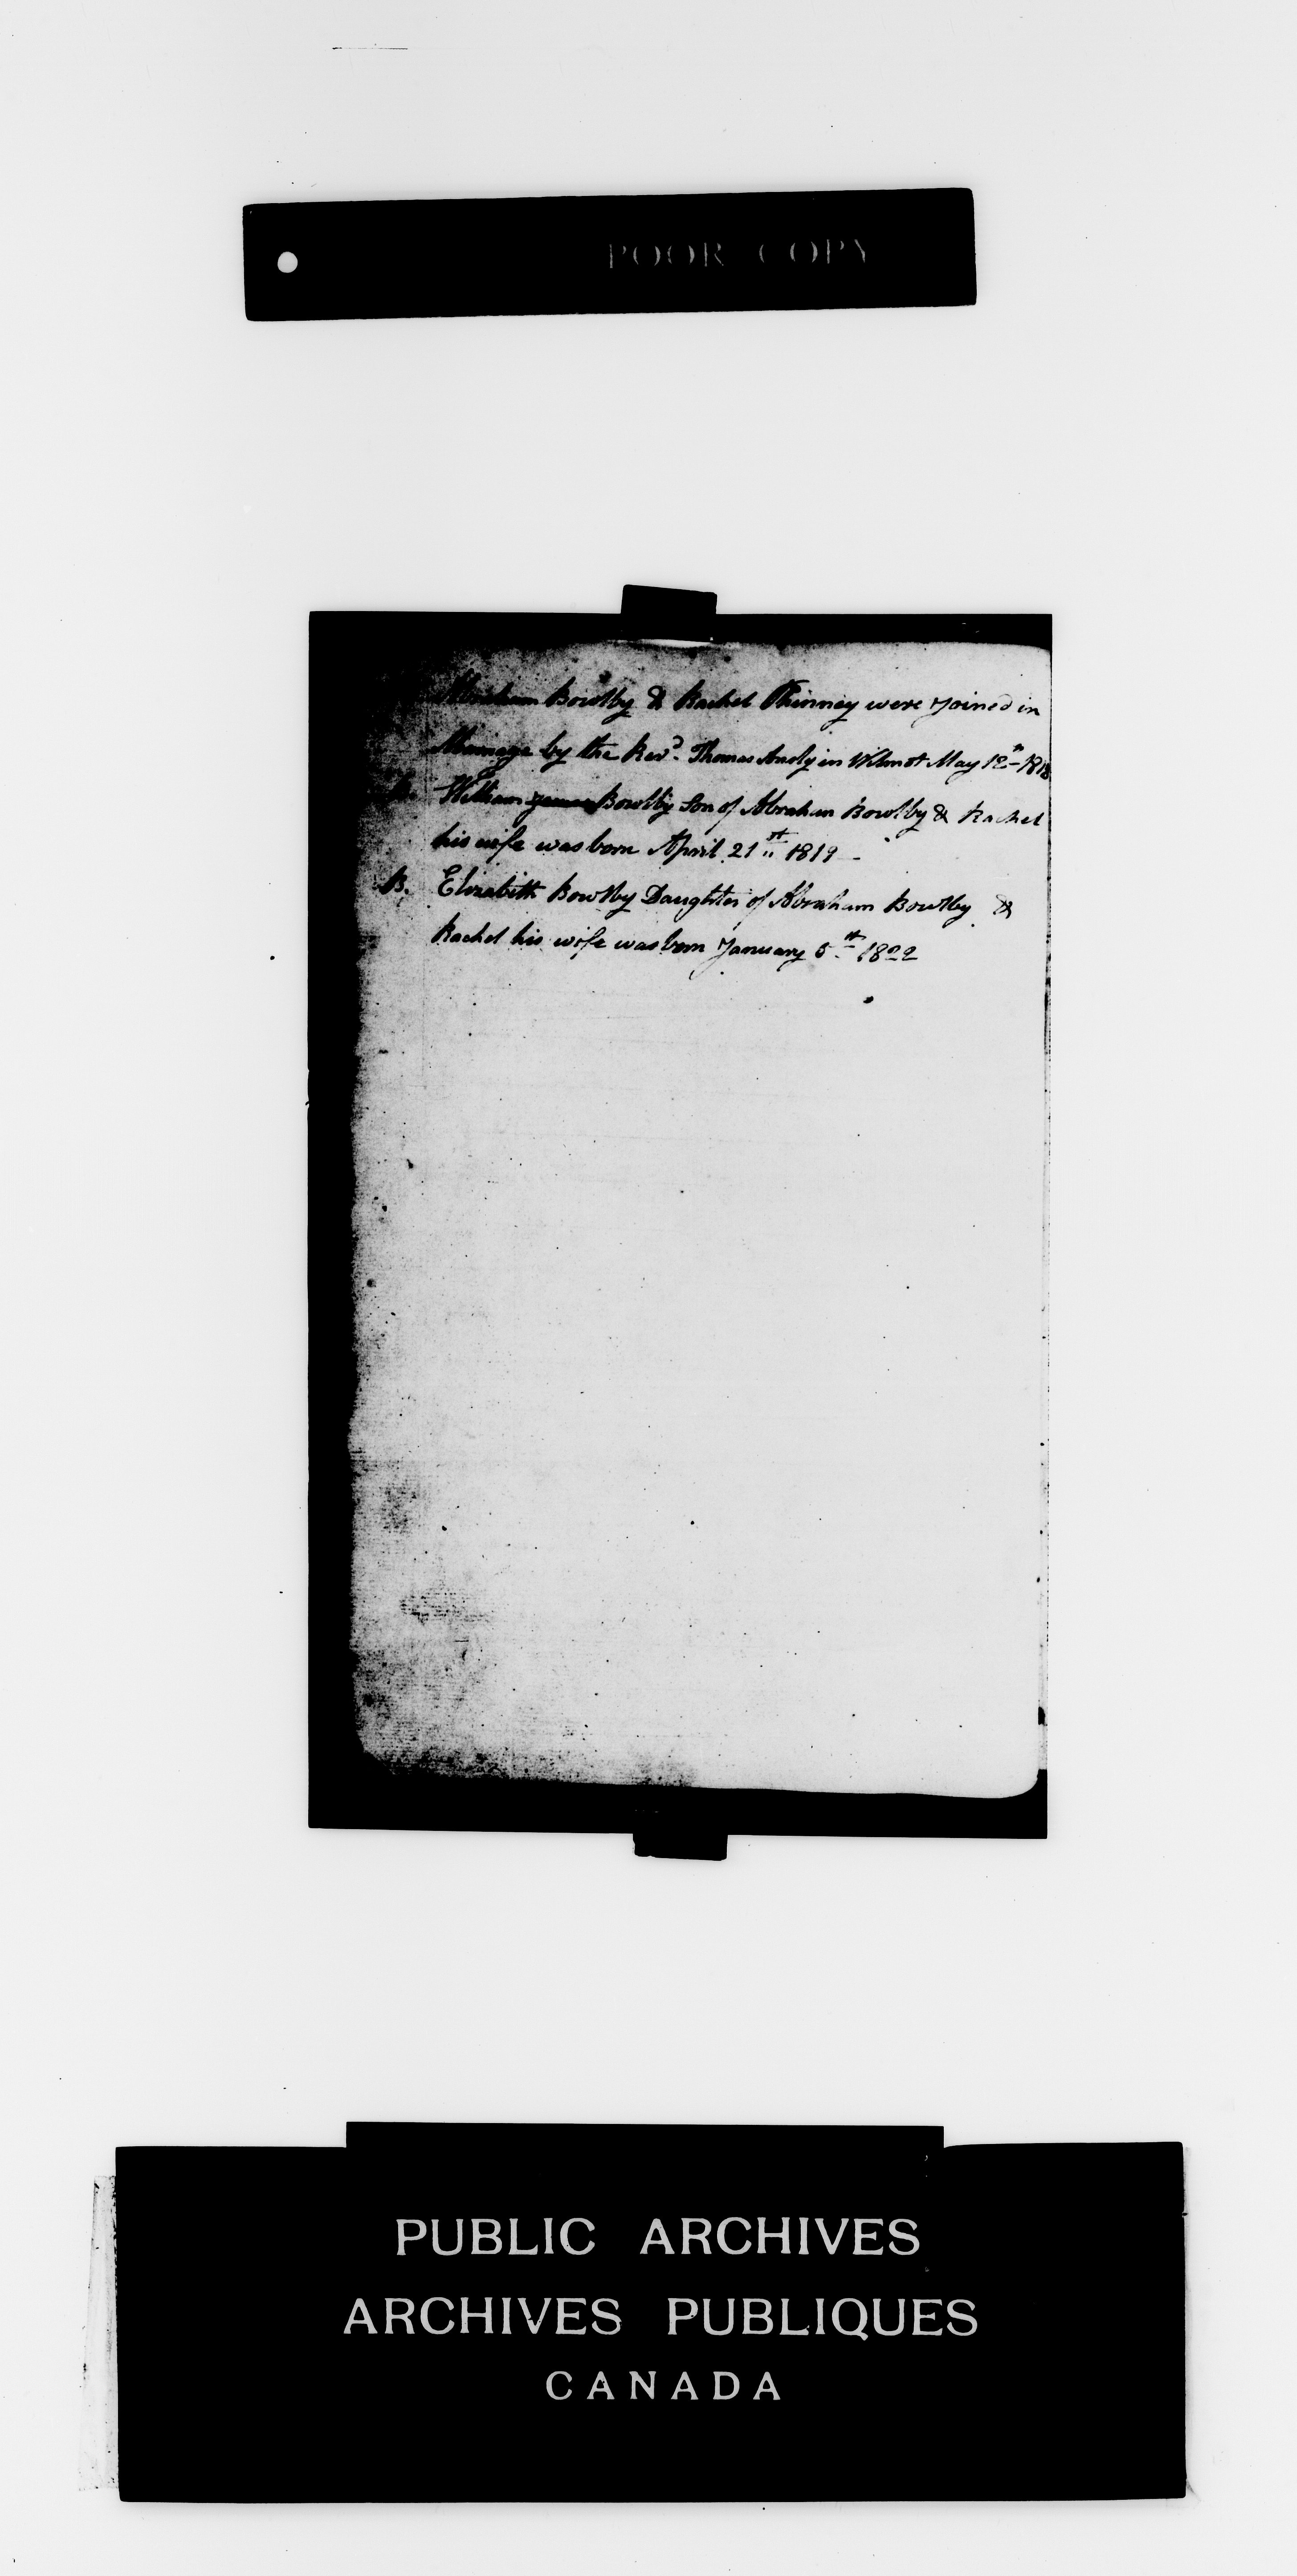 POOR COPY
Abraham Bowlby & Rachel Phinney were Joined in
Marriage by the Revd. Thomas Andy in Wilmot May 12th 1818
B. William James Bowlby Son of Abraham Bowlby & Rachel
his wife was born April 21st 1819
B. Elizabeth Bowlby Daughter of Abraham Bowlby &
Rachel his wife was born January 5th 1822
PUBLIC ARCHIVES
ARCHIVES PUBLIQUES
CANADA